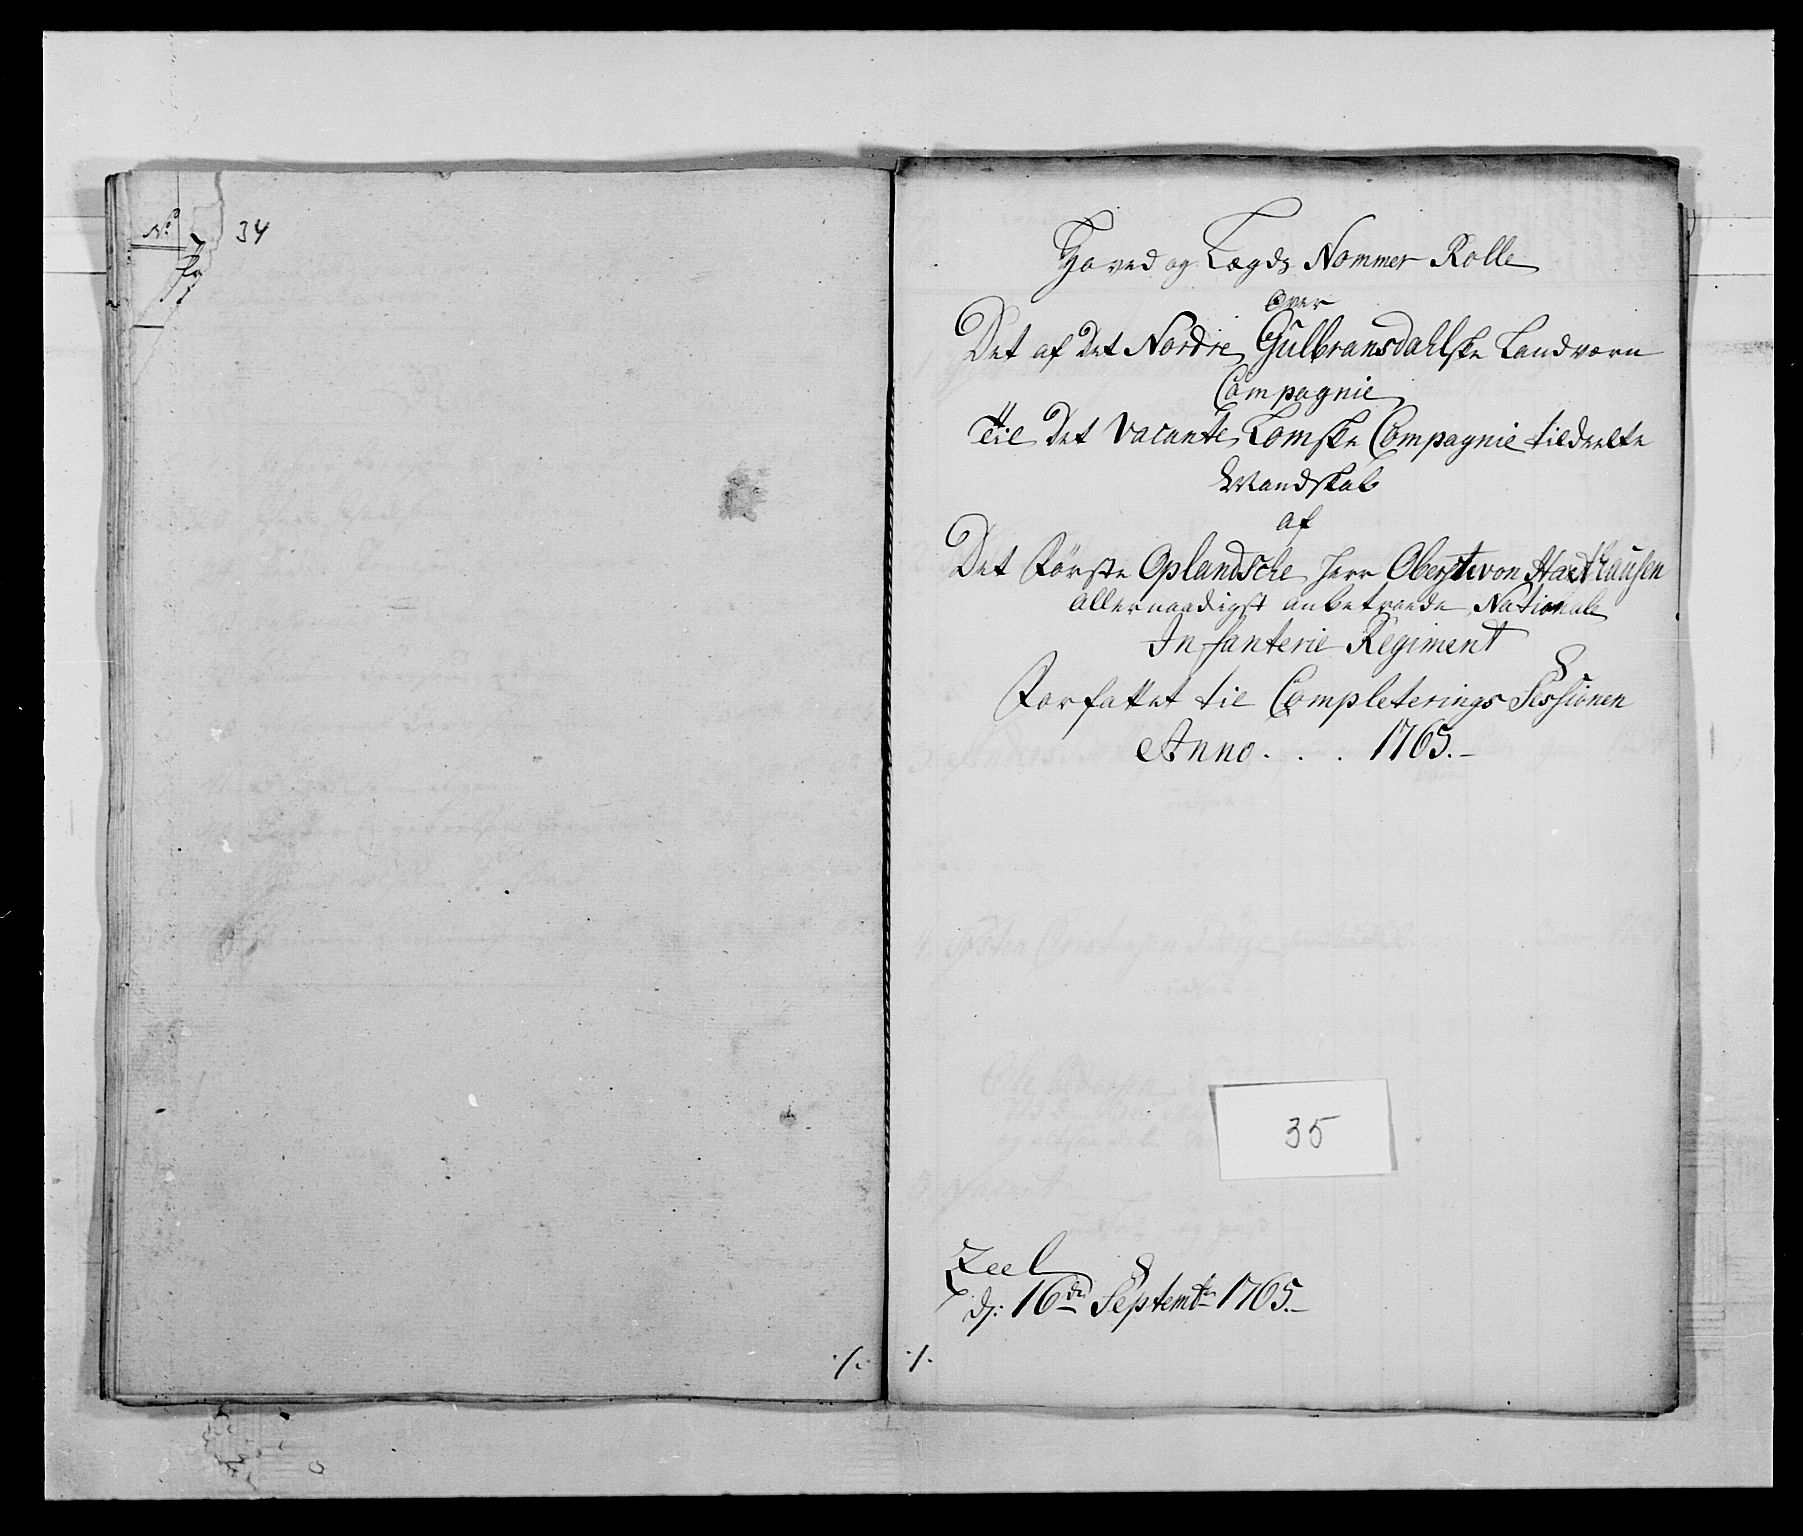 No
34
Hoved og Lægds Nommer Rolle
Over
Det af det Nordre Gulbransdahlske Landværn
Compagnie
Til det vacante Lomske Compagnie tildeelte
Mandskab
af
Det Første Oplandsche Herr Oberste von Haxthausen
allernaadigst anbetroede National
Infanterie Regiment
Forfattet til Completerings Sessionen
Anno . . . 1765.–
35
Zeel
d: 16de Septembr 1765.–
·/· ·/·